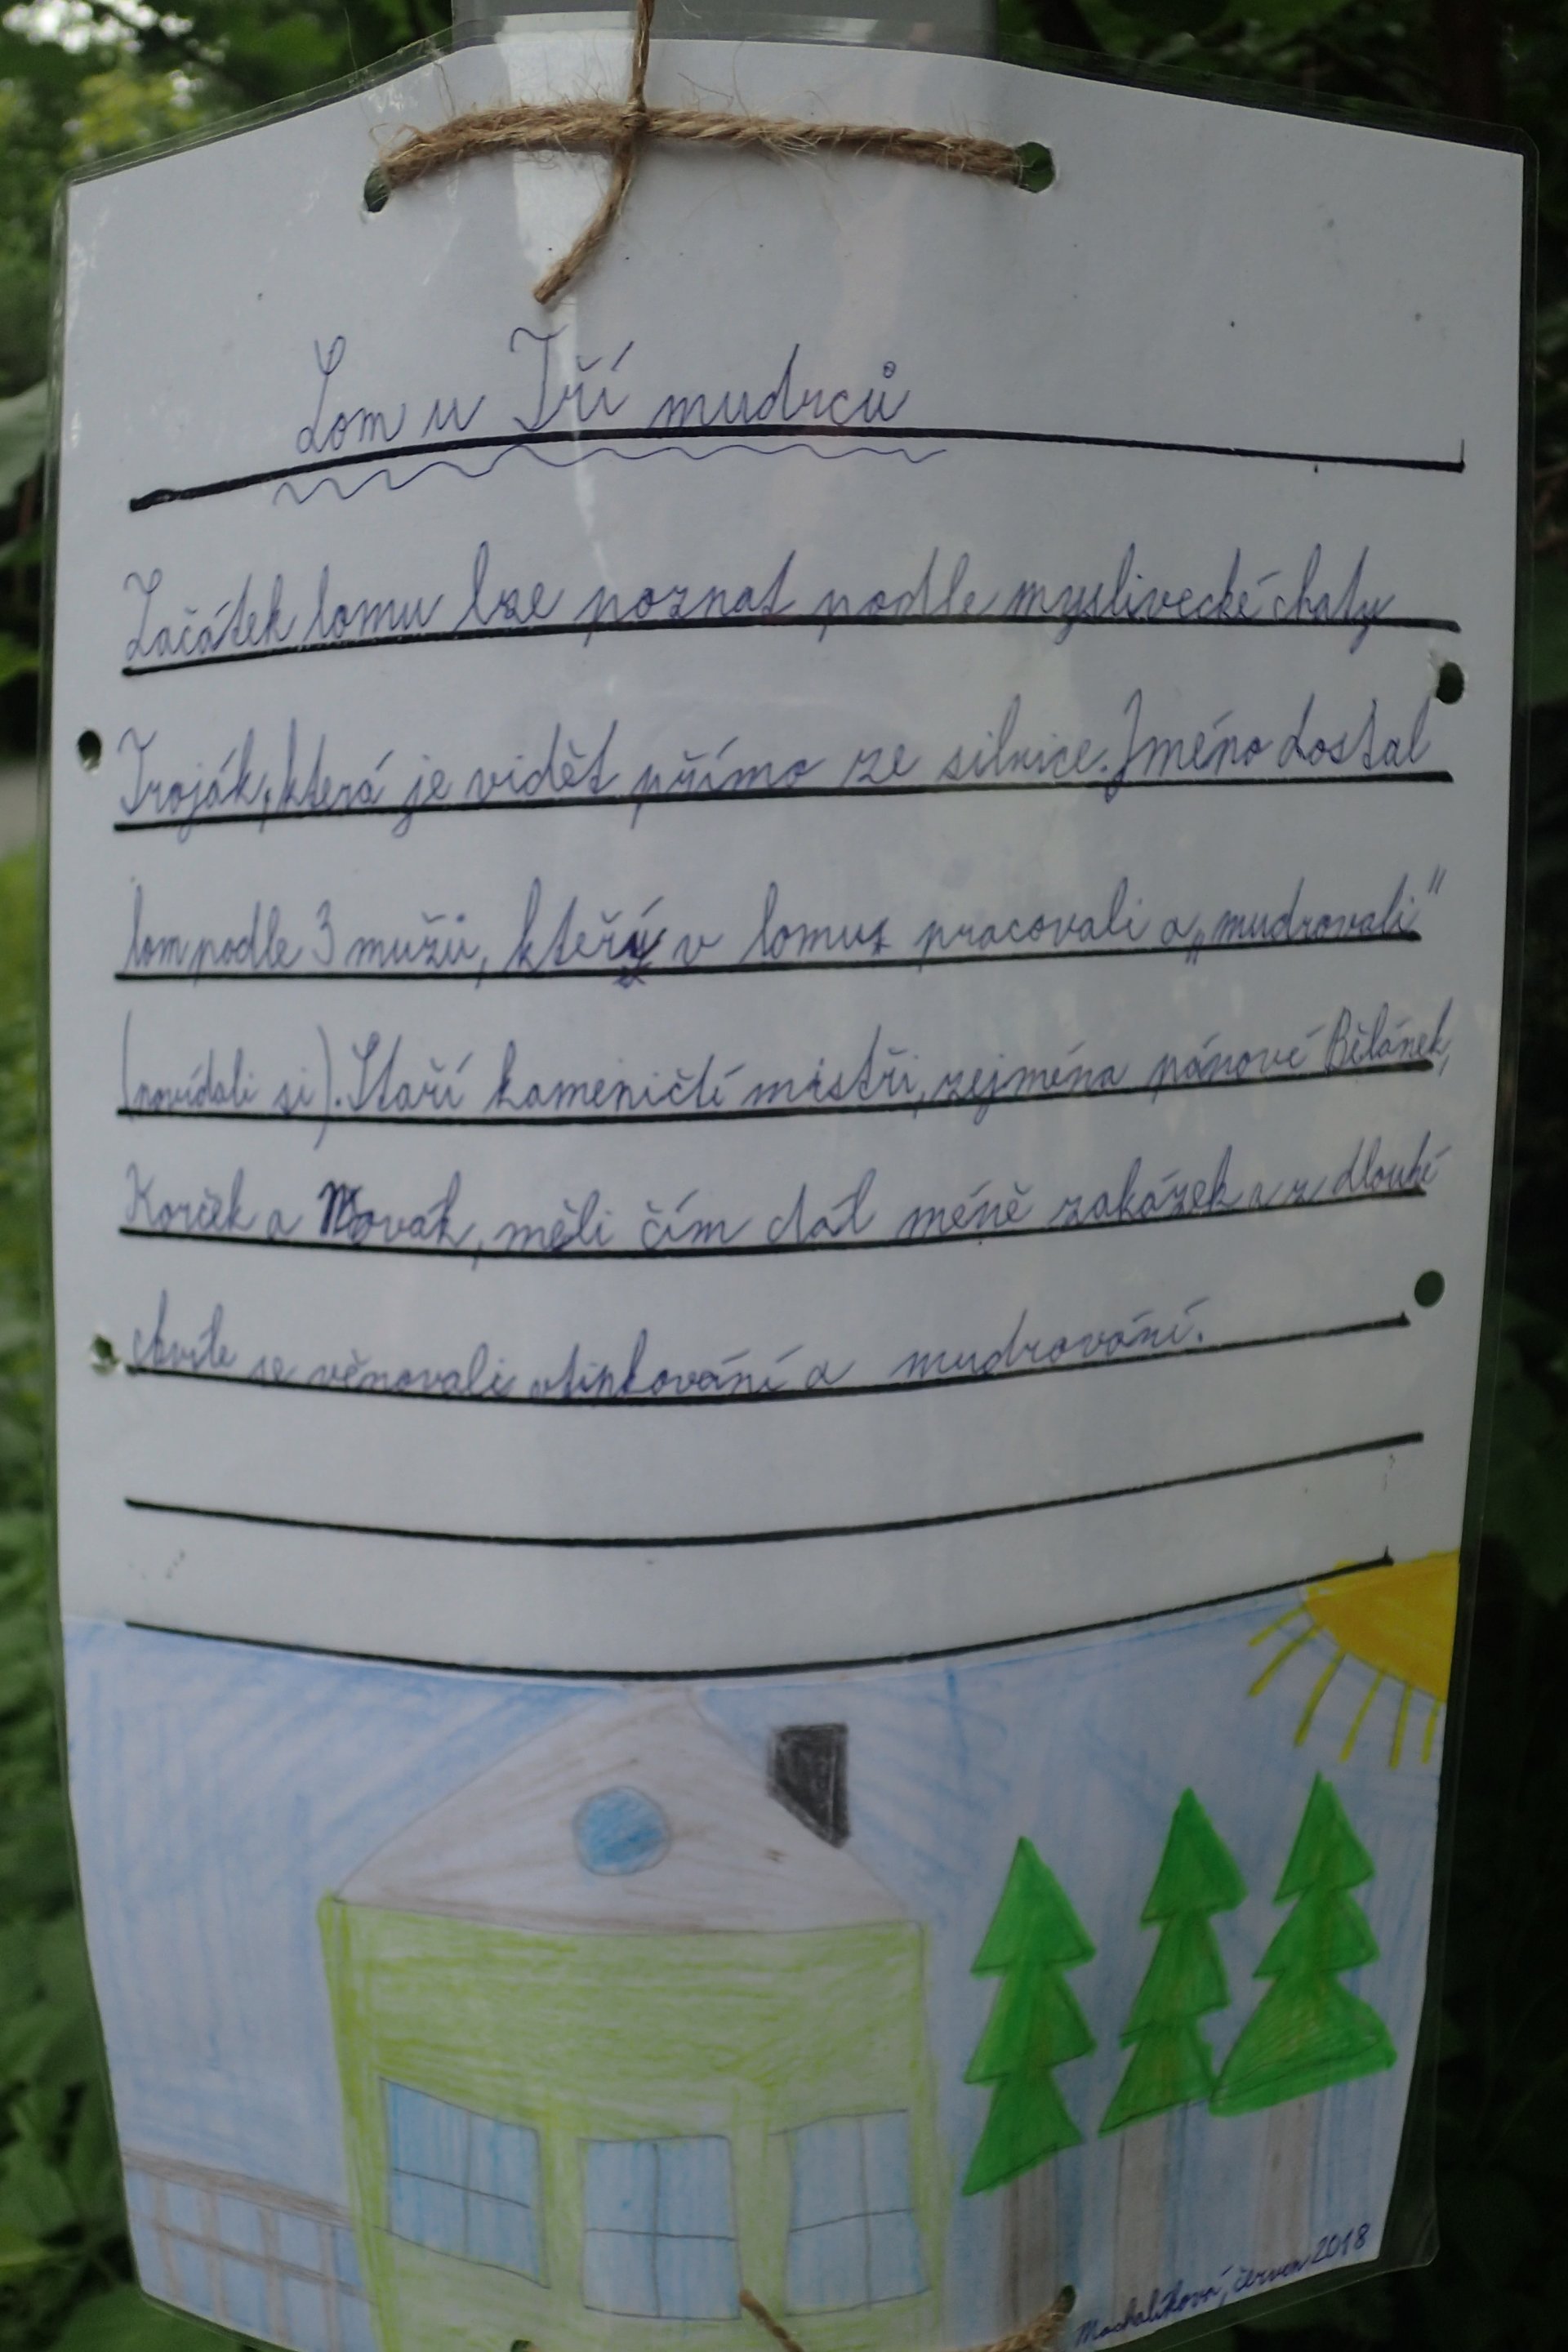 Lom u Tří mudrců
Začátek lomu lze poznat podle myslivecké chaty
Troják, která je vidět přímo ze silnice. Jméno dostal
lom podle 3 mužů, kteří v lomu pracovali a „mudrovali“
(povídali si). Staří kameničtí mistři, zejména pánové Bělánek,
a Novák, měli čím dál méně zakázek a z dlouhé
chvíle se věnovali vtipkování a mudrování.
červen 2018